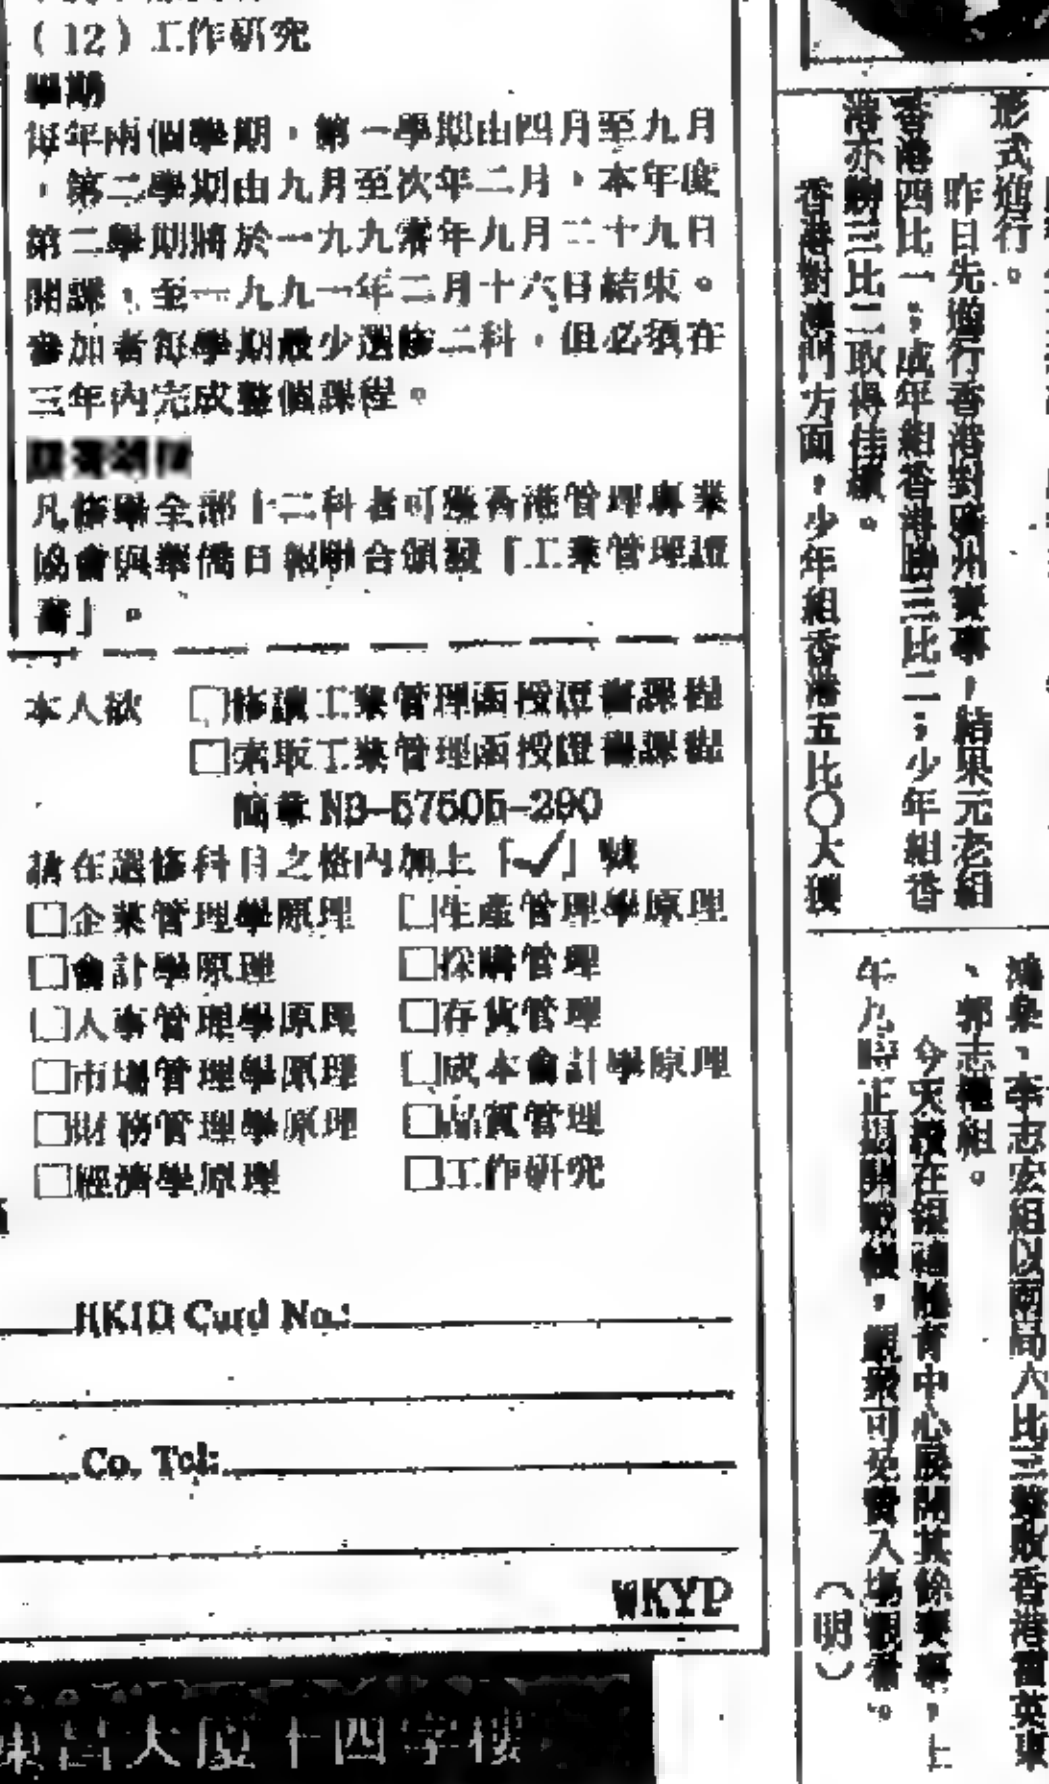 (12)工作研究
學期
每年兩個學期，第一學期由四月至九月
，第二學期由九月至次年二月，本年度
第二學期將於一九九零年九月二十九日
開課，至一九九一年二月十六日結束。
參加者每學期最少選修二科，但必須在
三年內完成整個課程。
凡修畢全部十二科者可獲香港管理專業
協會與華僑日報聯合頒發「工業管理證
書」。
本人欲 □修讀工業管理面授證書課程
□索取工業管理面授證書課程
簡章 N3-57505-290
請在選修科目之格內加上「✓」號
□企業管理學原理 □生產管理學原理
□會計學原理 □採購管理
□人事管理學原理 □存貨管理
□市場管理學原理 □成本會計學原理
□財務管理學原理 □品質管理
□經濟學原理 □工作研究
HKID Card No.:
Co. Tel:
WKYP
東昌大廈十四字樓
形式進行。
昨日先進行香港對廣州賽事，結果元老組
香港四比一；成年組香港勝三比二；少年組香
港亦以三比二取得佳績。
香港對澳門方面，少年組香港五比〇大獲
鴻、李志宏組以兩局六比三擊敗香港
、郭志權組。
今天續在體育中心展開其餘賽事，上
午九時正揭開戰幔，觀眾可免費入場觀看。
（明）